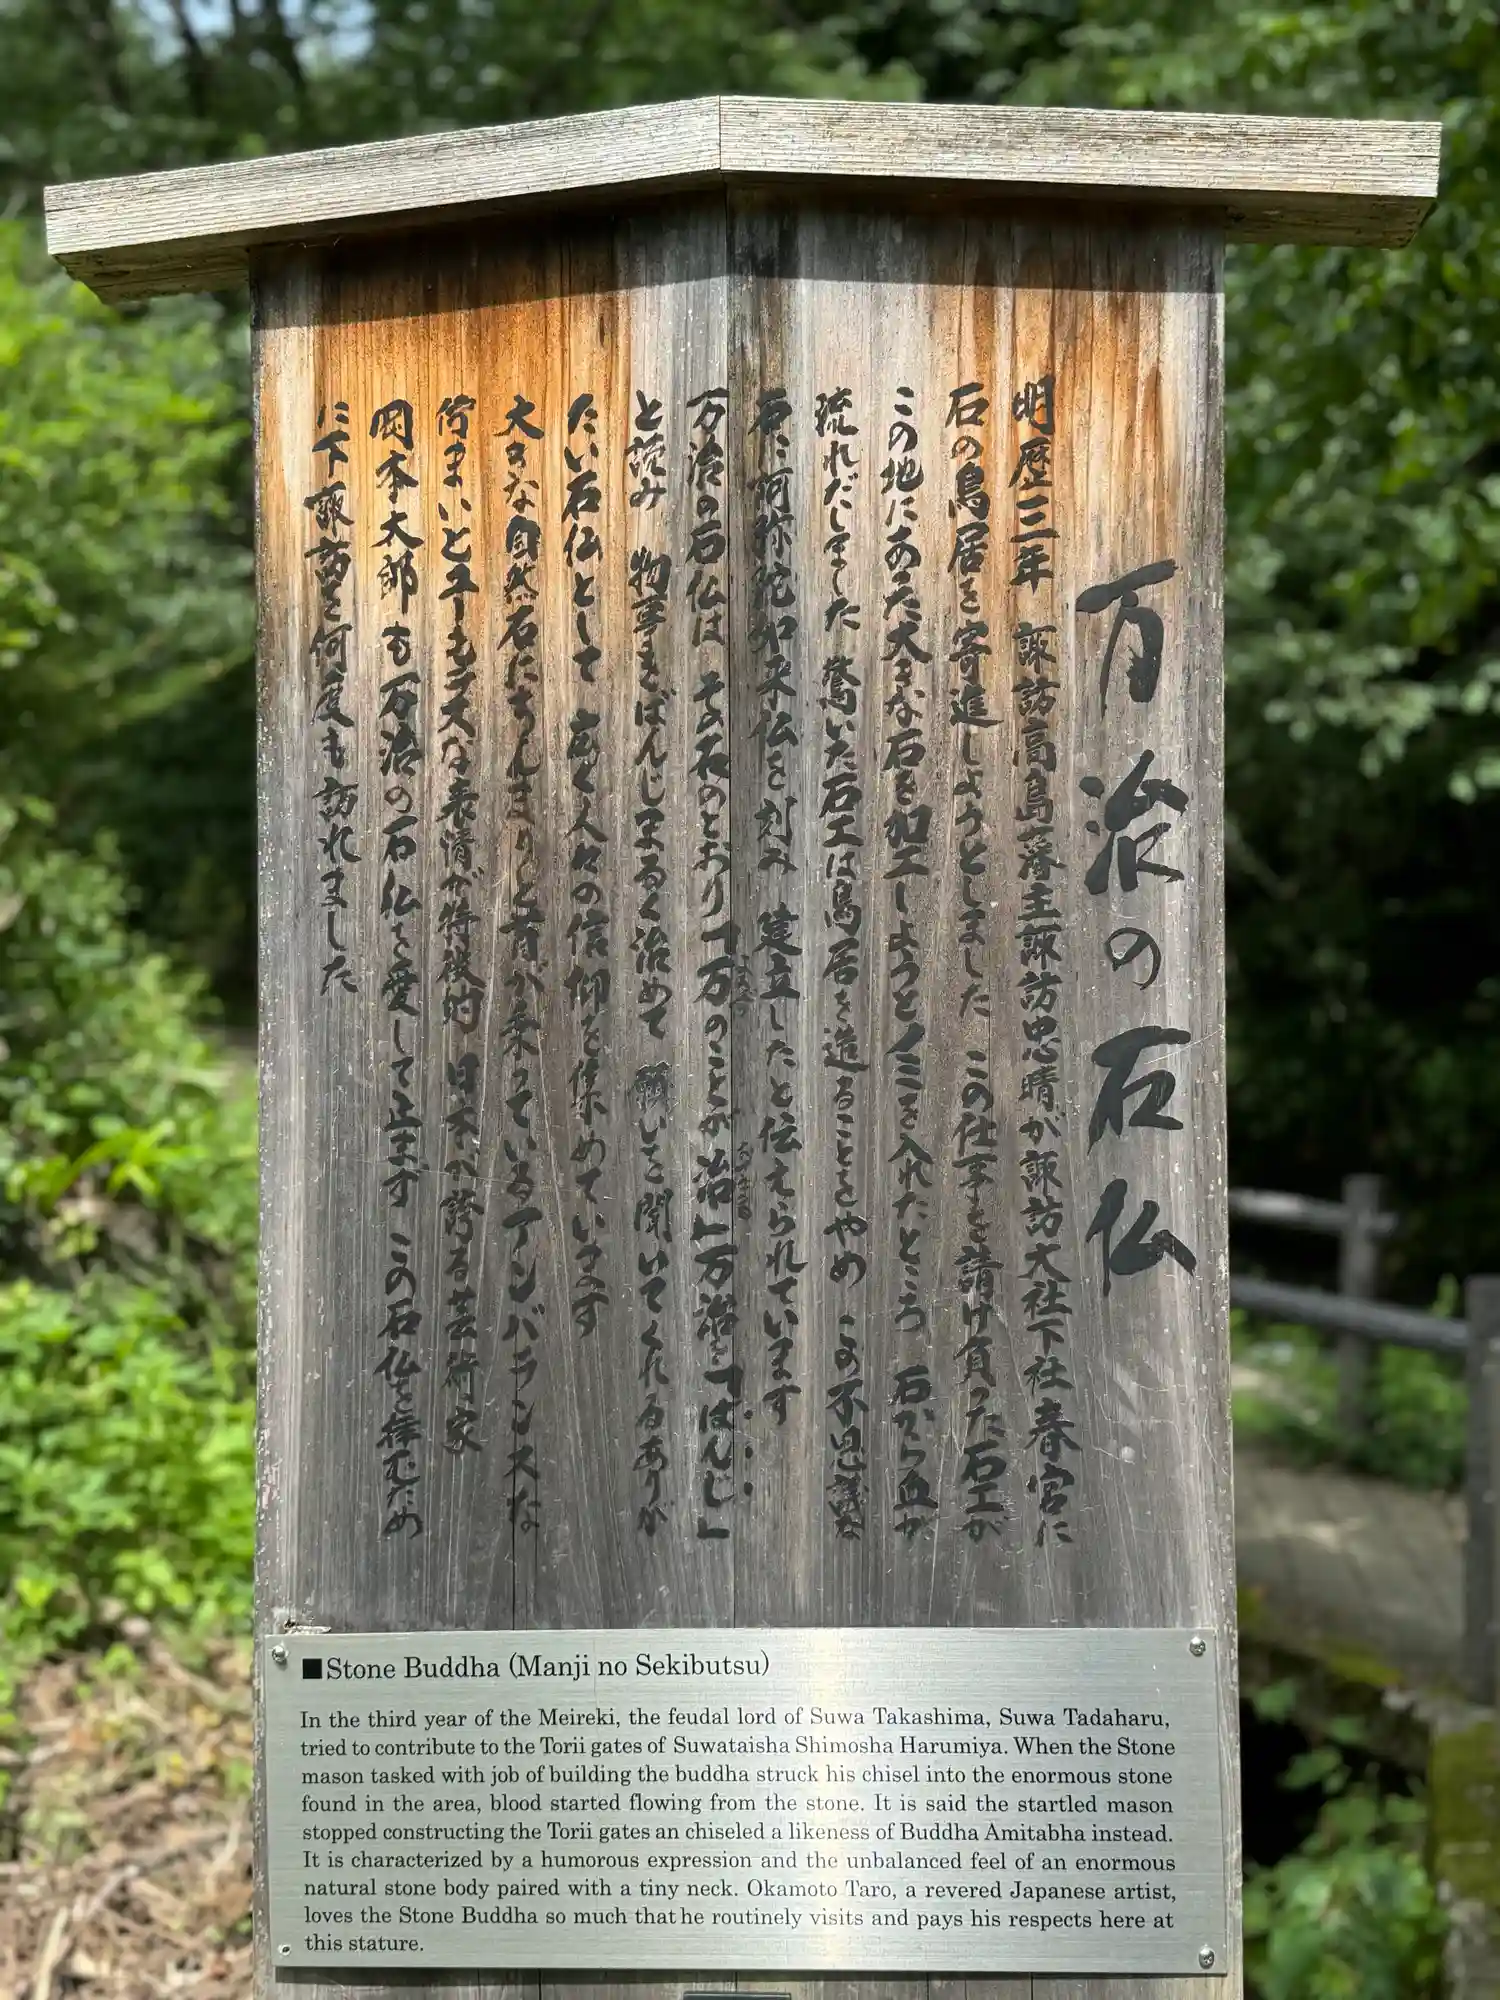 万治の石仏
明歴三年 諏訪高島藩主諏訪忠晴が諏訪大社下社春宮に
石の鳥居を寄進しようとしました この仕事を請け負った石工が
この地にあった大きな石を加工しようとノミを入れたところ 石から血が
流れだしました 驚いた石工は鳥居を造ることをやめ この不思議な
石に阿弥陀如来仏を刻み 建立したと伝えられています
万治の石仏は その石のとおり「万のことが治」万治を「ばんじ」
と読み 物事をばんじまるく治めて 願いを聞いてくれるありが
たい石仏として 広く人々の信仰を集めています
大きな自然石にちんまりと首が乗っているアンバランスな
佇まいとユーモラスな表情が特徴的 日本が誇る芸術家
岡本太郎も万治の石仏を愛して止まず この石仏を拝むため
に下諏訪を何度も訪れました
■Stone Buddha (Manji no Sekibutsu)
In the third year of the Meireki, the feudal lord of Suwa Takashima, Suwa Tadaharu,
tried to contribute to the Torii gates of Suwataisha Shimosha Harumiya. When the Stone
mason tasked with job of building the buddha struck his chisel into the enormous stone
found in the area, blood started flowing from the stone. It is said the startled mason
stopped constructing the Torii gates an chiseled a likeness of Buddha Amitabha instead.
It is characterized by a humorous expression and the unbalanced feel of an enormous
natural stone body paired with a tiny neck. Okamoto Taro, a revered Japanese artist,
loves the Stone Buddha so much that he routinely visits and pays his respects here at
this stature.